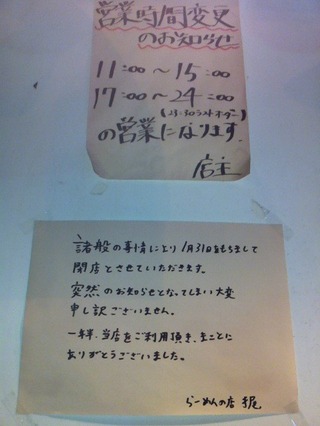 営業時間変更
のお知らせ
11:00～15:00
17:00～24:00
(23:30ラストオーダー)
の営業になります.
店主
諸般の事情により 1月31日をもちまして
閉店とさせていただきます。
突然のお知らせとなってしまい大変
申し訳ございません。
一年半、当店をご利用頂き、まことに
ありがとうございました。
らーめんの店